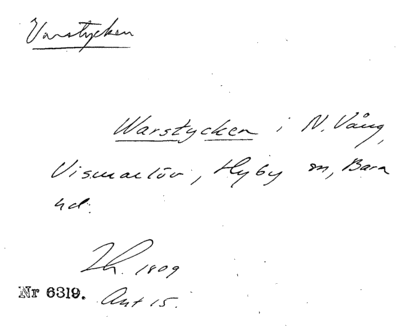 Varstycken
Warstycken i N. Vång,
Vismarlöv, Hyby sn, Bara
hd.
1809
Nr 6319. Akt 15.